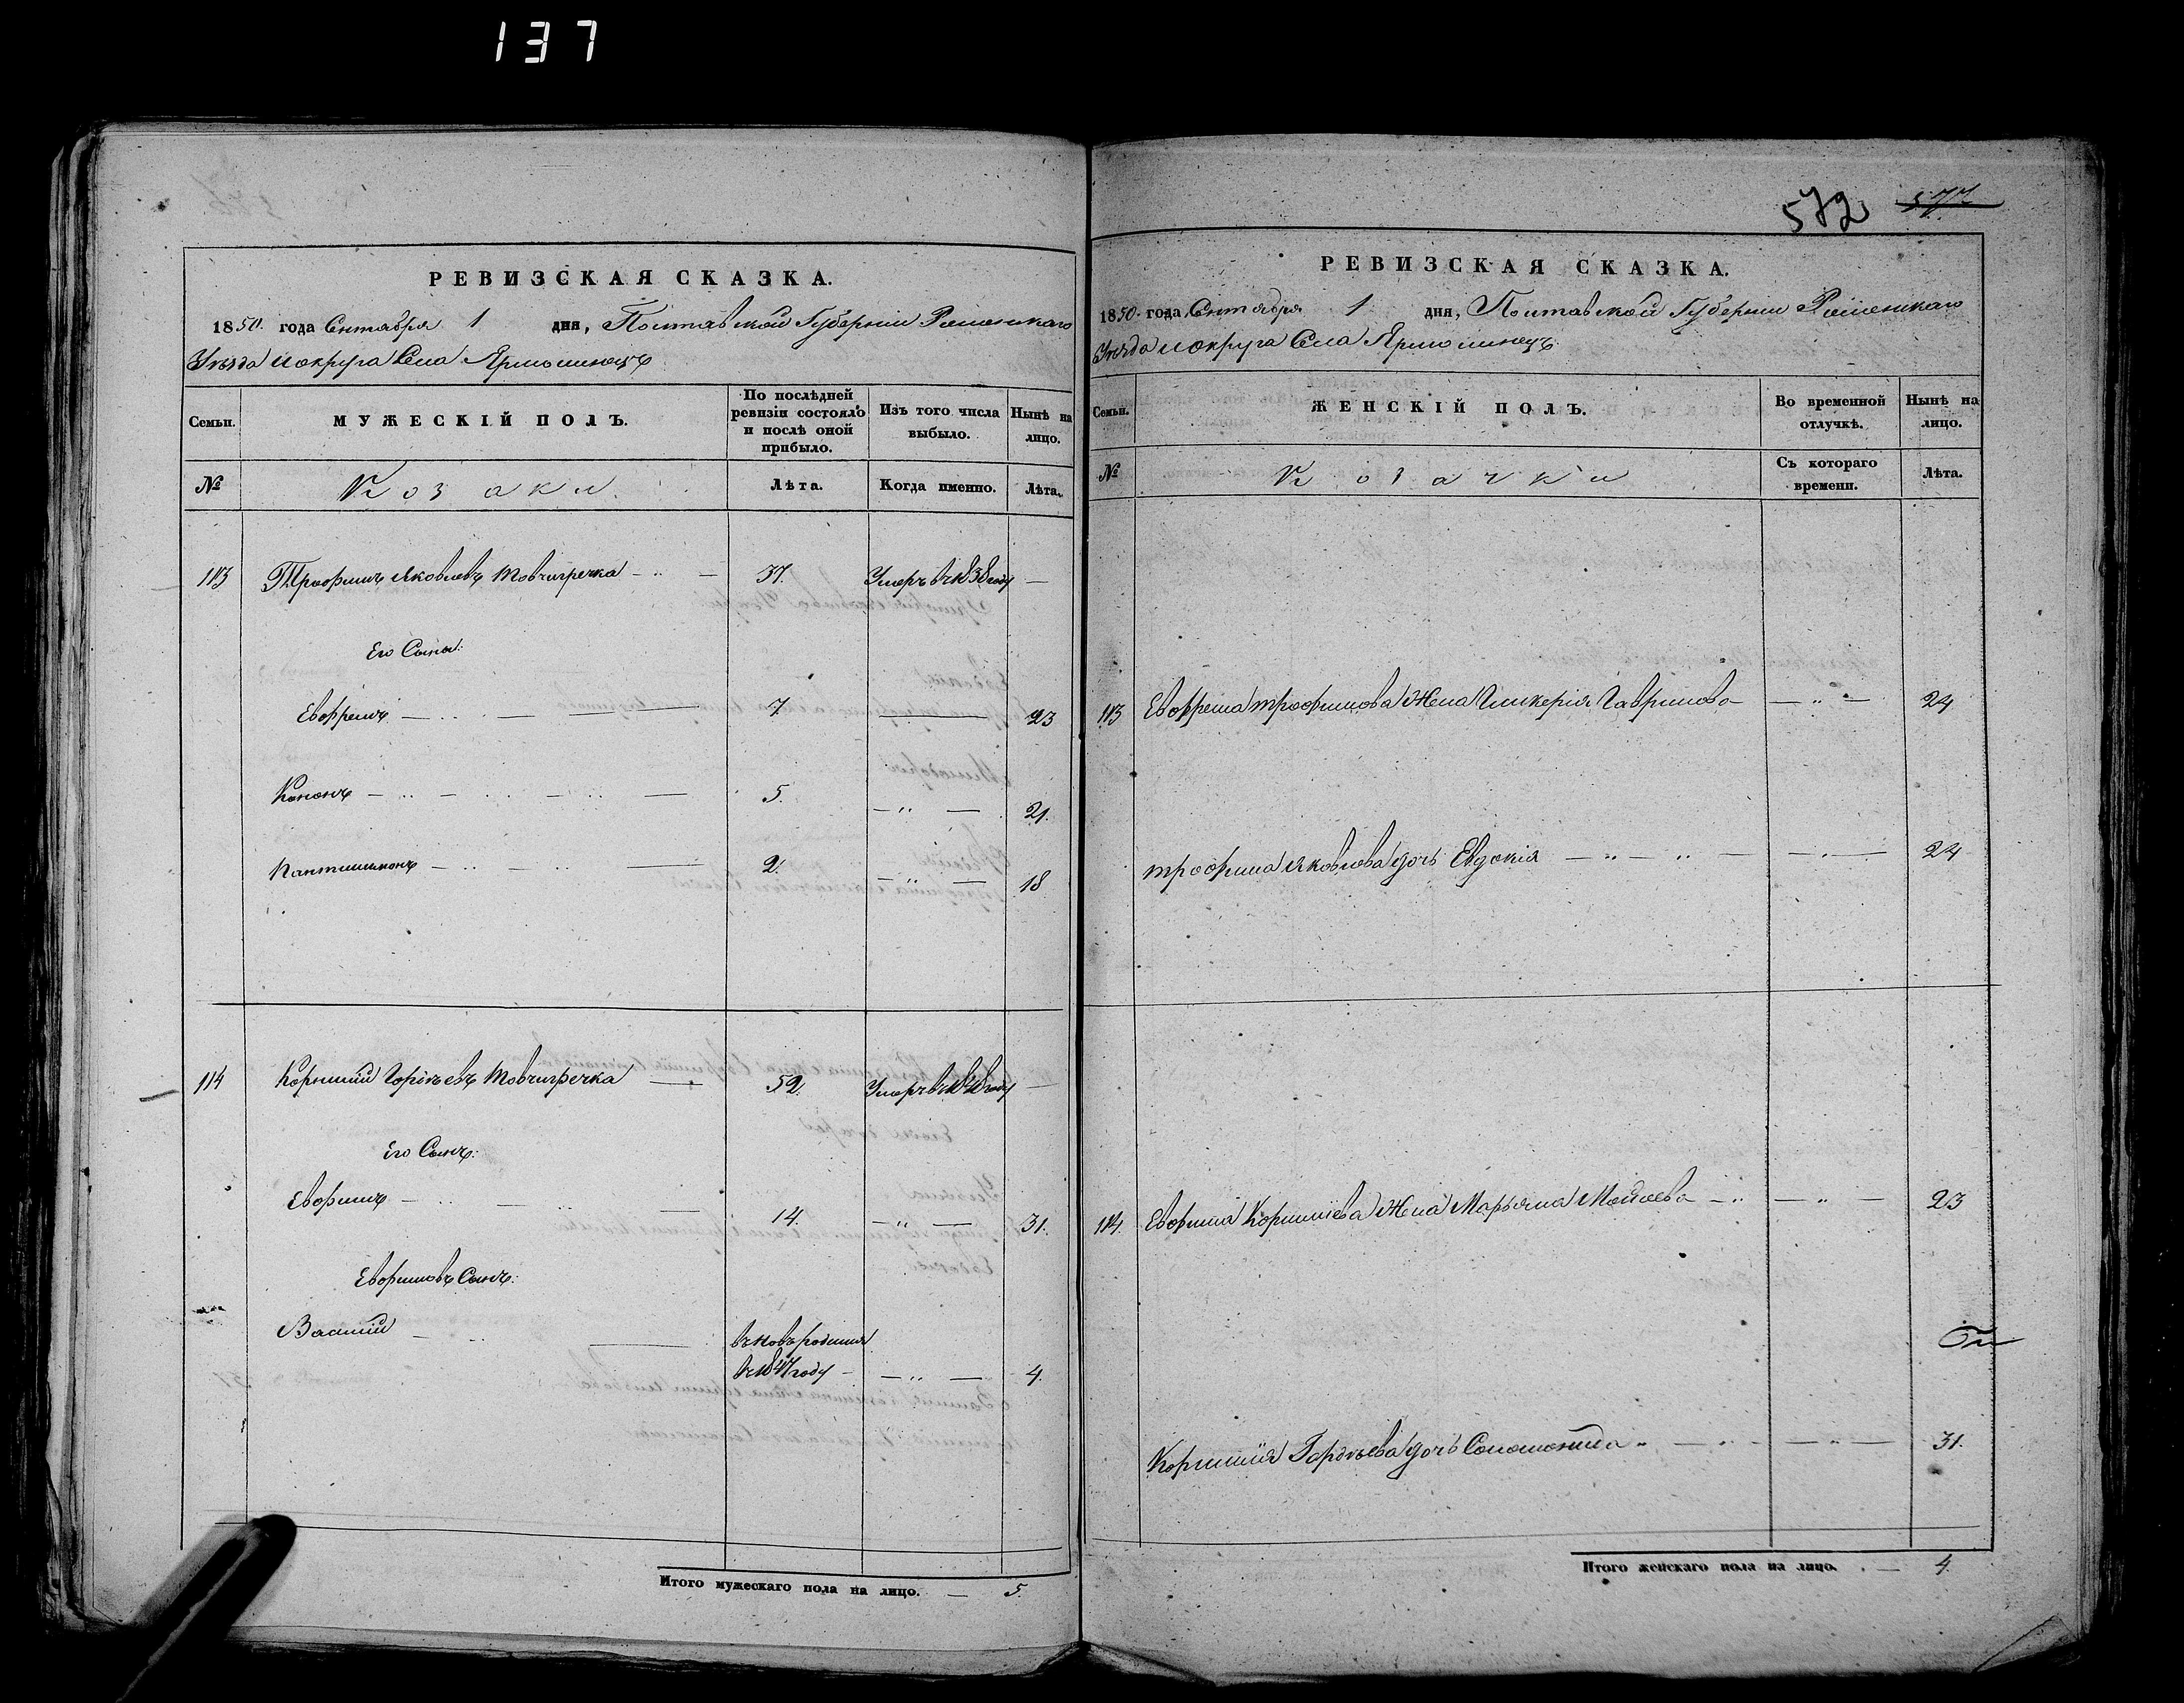 137
РЕВИЗСКАЯ СКАЗКА.
1850. года Сентября 1 дня, Полтавской Губернии Роменскаго
Уезда и округа Села Ярмолинецъ
Семьи. МУЖЕСКІЙ ПОЛЪ. По послѣдней ревизіи состояло и послѣ оной прибыло. Изъ того числа выбыло. Нынѣ на лицо.
№ Козаки. Лѣта. Когда именно. Лѣта.
113 Трофимъ Яковлевъ Товчигречка — 37. Умеръ въ 1838 году —
Его Сыны:
Евфремъ — 7 — 23
Кононъ — 5. — 21.
Пантилимонъ — 2. — 18
114 Корнилий Гордѣевъ Товчигречка — 52. Умеръ въ 1848 году —
Его Сынъ:
Евфимъ — 14. — 31.
Евфимовъ Сынъ:
Василий — вновь родился
въ 1847 году — 4.
Итого мужескаго пола на лицо. — 5.
572 577
РЕВИЗСКАЯ СКАЗКА.
1850. года Сентября 1 дня, Полтавской Губернии Роменскаго
Уезда и округа Села Ярмолинецъ
Семьи. ЖЕНСКІЙ ПОЛЪ. Во временной отлучкѣ. Нынѣ на лицо.
№ Козачки Съ котораго времени. Лѣта.
113 Евфрема Трофимова Жена Гликерія Гаврилова — 24
Трофима Яковлева дочь Евдокія — 24
114. Евфима Корнилиева Жена Марьяна Мойсеева — 23
Корнилия Гордѣева дочь Соломонида — 31.
Итого женскаго пола на лицо. — 4.